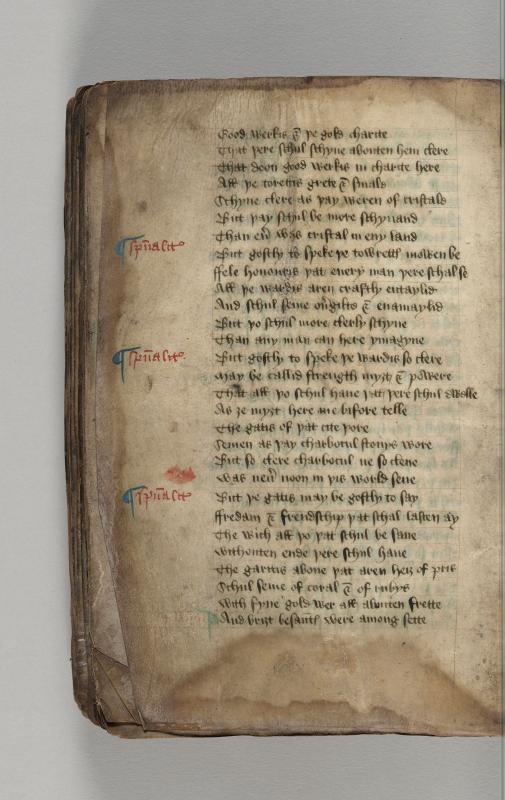 Good werkis & þe gold charite
That þere schul schyne abouten hem clere
That doon good werkis in charite here
All þe torettis grete & smale
Schyne clere as þay weren of cristale
But þay schul be more schynand
Than eu̅ was cristal in eny land
¶ sp̅ualit̅
But gostly to speke þe towrettis mowen be
ffele honouris þat euery man þere schal se
All þe wardis aren craftly entaylid
And schul seme ou̅gilte & enamaylid
But þo schul more clerly schyne
Than any man can here ymagyne
¶ sp̅ualit̅
But gostly to speke þe wardis so clere
may be callid strength myȝt & powere
That all þo schul haue þat þere schul dwelle
As ȝe myȝt here me bifore telle
The gatis of þat cite þore
Semen as þay charbocul stonys wore
But so clere charbocul ne so clene
Was neu̅ noon in þis world sene
¶ sp̅ualit̅
But þe gatis may be gostly to say
ffredam & frendschip þat schal lasten ay
The wich all þo þat schul be saue
withouten ende þere schul haue
The garitis aboue þat aren heiȝ of pris
Schul seme of coral & of rubys
With fyne gold wer all abouten frette
And briȝt besantis were among sette